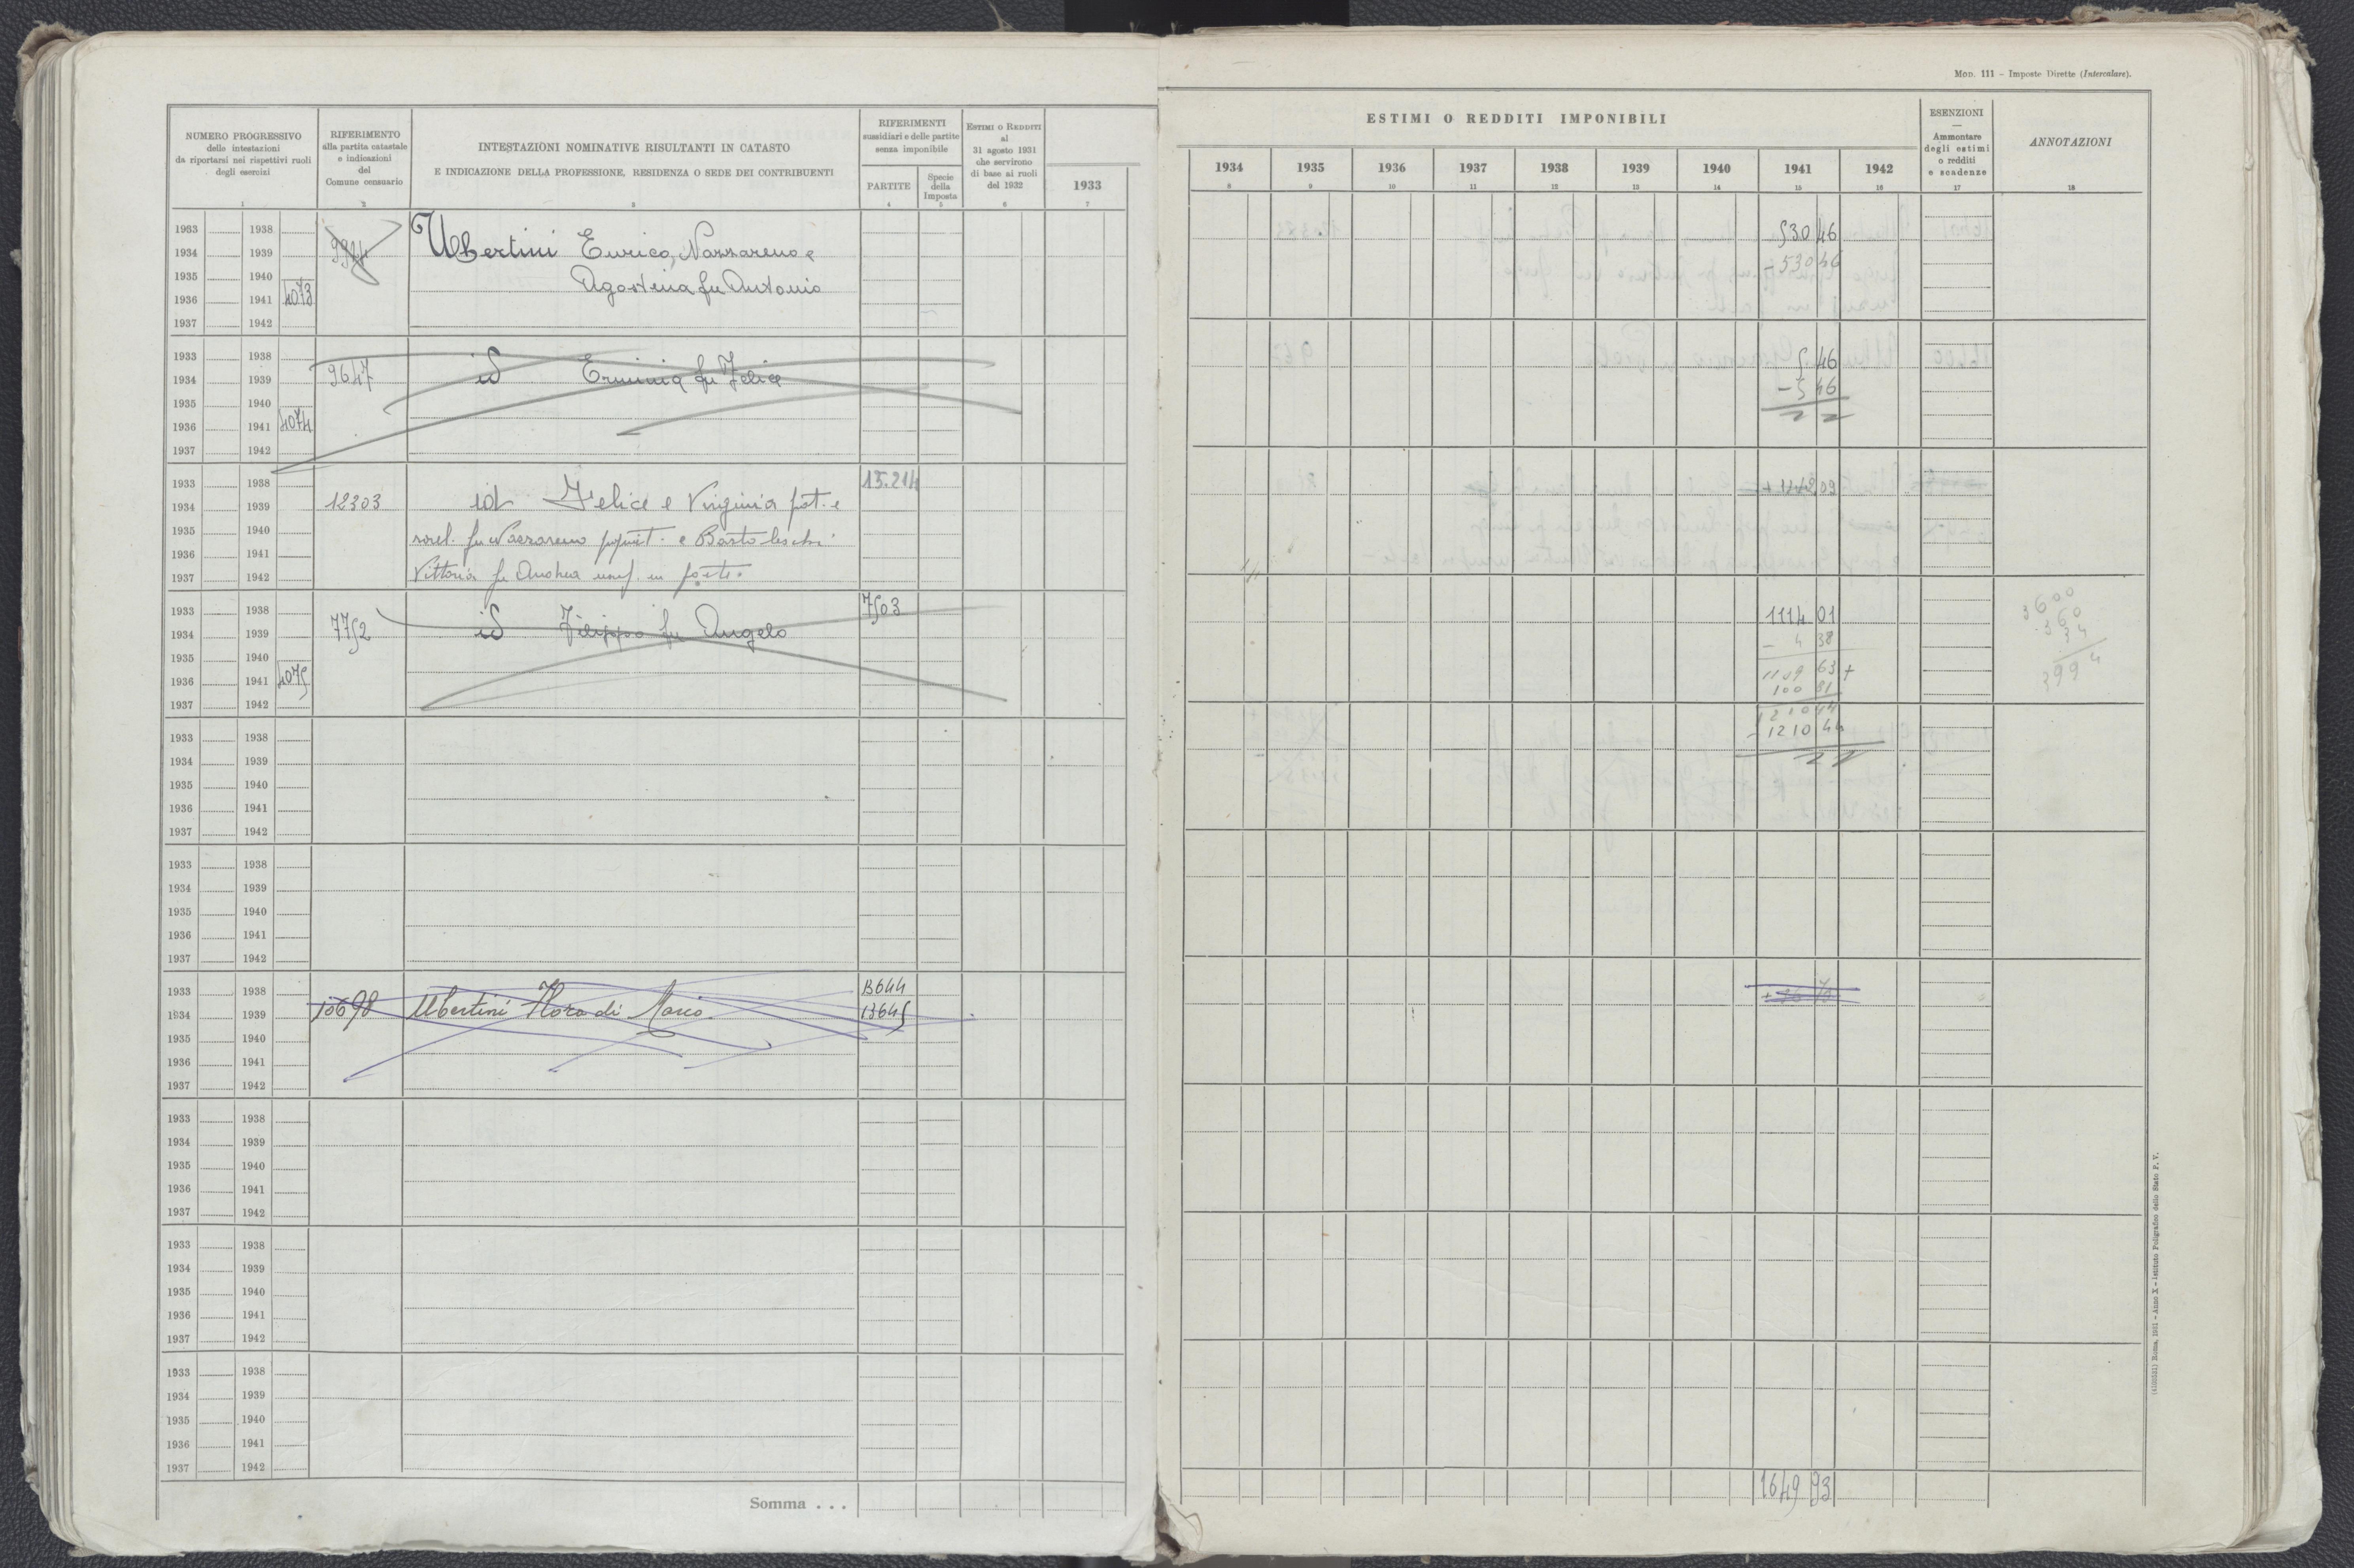 MOD. 111 – Imposte Dirette (Intercalare).
NUMERO PROGRESSIVO
delle intestazioni
da riportarsi nei rispettivi ruoli
degli esercizi
1
RIFERIMENTO
alla partita catastale
e indicazioni
del
Comune censuario
2
INTESTAZIONI NOMINATIVE RISULTANTI IN CATASTO
E INDICAZIONE DELLA PROFESSIONE, RESIDENZA O SEDE DEI CONTRIBUENTI
3
RIFERIMENTI
sussidiari e delle partite
senza imponibile
PARTITE
4
Specie
della
Imposta
5
ESTIMI O REDDITI
al
31 agosto 1931
che servirono
di base ai ruoli
del 1932
6
1933
7
ESTIMI O REDDITI IMPONIBILI
1934 1935 1936 1937 1938 1939 1940 1941 1942
8 9 10 11 12 13 14 15 16
ESENZIONI
—
Ammontare
degli estimi
o redditi
e scadenze
17
ANNOTAZIONI
18
1933 1938
1934 1939 9924 Ubertini Enrico, Nazzareno e 530 46
1935 1940 - 530 46
1936 1941 4073 Agostina fu Antonio
1937 1942
1933 1938 5 46
1934 1939 9647 id Erminia fu Felice
1935 1940 - 5 46
1936 1941 4074
1937 1942
1933 1938 15.214
1934 1939 12303 id Felice e Virginia frat. e
1935 1940 sorel. fu Nazzareno propriet. e Bartoleschi
1936 1941
1937 1942 Vittoria fu Andrea usuf. in parte.
1933 1938 7503 1114 01
1934 1939 7752 id Filippo fu Angelo - 4 38
1935 1940 1109 63 +
1936 1941 4075 100 81
1937 1942 1210 44
- 1210 44
3600
360
34
3994
1933 1938
1934 1939
1935 1940
1936 1941
1937 1942
1933 1938
1934 1939
1935 1940
1936 1941
1937 1942
1933 1938 13644
1934 1939 10698 Ubertini Flora di Mario 13645
1935 1940
1936 1941
1937 1942
1933 1938
1934 1939
1935 1940
1936 1941
1937 1942
1933 1938
1934 1939
1935 1940
1936 1941
1937 1942
1933 1938
1934 1939
1935 1940
1936 1941
1937 1942
Somma . . . 1649 93
(4103531) Roma, 1931 – Anno X – Istituto Poligrafico dello Stato P. V.